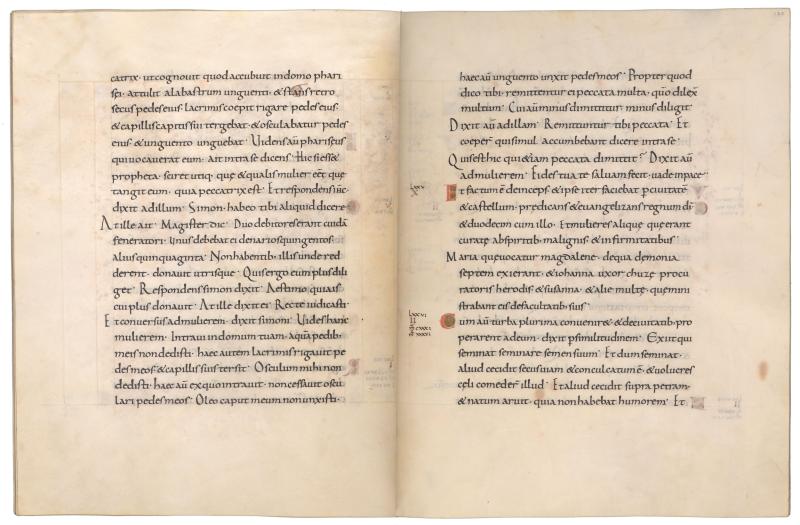 catrix · ut cognovit quod accubuit in domo phari
sęi · attulit alabastrum unguenti · & stans retro
secus pedes eius · lacrimis coepit rigare pedes eius ·
& capillis capitis sui tergebat · & osculabatur pedes
eius · & unguento unguebat · Videns aū phariseus
qui vocaverat eum · ait intra se dicens · Hic si ess&
propheta · sciret utiq; quę & qualis mulier eēt quę
tangit eum · quia peccatrix est · Et respondens iħc ·
dixit ad illum · Simon · habeo tibi aliquid dicere ·
At ille ait · Magister dic · Duo debitores erant cuidā
feneratori · Unus debebat denarios quingentos ·
alius quinquaginta · Non habentib; illis unde red
derent · donavit utrisque · Quis ergo eum plus dili
get · Respondens simon dixit · Aestimo quia is
cui plus donavit · At ille dixit ei · Recte iudicasti ·
Et conversus ad mulierem · dixit simoni · Vides hanc
mulierem · Intravi in domum tuam · aquā pedib;
meis non dedisti · haec autem lacrimis rigavit pe
des meos · & capillis suis tersit · Osculum mihi non
dedisti · haec aū ex quo intravit · non cessavit oscu
lari pedes meos · Oleo caput meum non unxisti ·
haec aū unguento unxit pedes meos · Propter quod
dico tibi · remittentur ei peccata multa · quō dilex
multum · Cui aū minus dimittitur · minus diligit ·
Dixit aū ad illam · Remittuntur tibi peccata · Et
coeper qui simul accumbebant dicere intra se ·
Quis est hic qui & iam peccata dimittit · Dixit aū
ad mulierem · Fides tua te salvam fecit · vade in pace ·
Et factum ē deinceps & ipse iter faciebat p civitatē
& castellum · predicans & euangelizans regnum dī ·
& duodecim cum illo · Et mulieres alique quę erant
curatę ab spiritib; malignis · & infirmitatibus ·
Maria quę vocatur magdalene · de qua demonia
septem exierant · & iohanna uxor chuzę procu
ratoris herodis · & susanna · & alię multę · quę mini
strabant eis de facultatib; suis ·
Cum aū turba plurima convenir& · & de civitatib; pro
perarent ad eum · dixit p similitudinem · Exiit qui
seminat seminare semen suum · Et dum seminat ·
aliud cecidit secus viam · & conculcatum ē · & volucres
cęli comeder illud · Et aliud cecidit supra petram ·
& natum aruit · quia non habebat humorem · Et